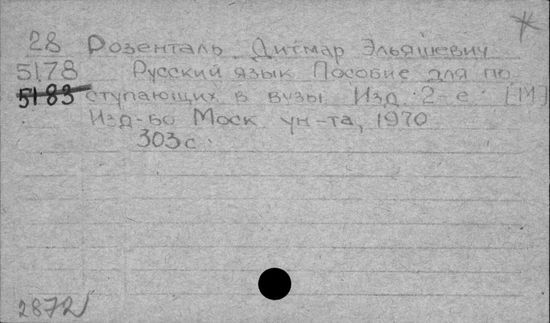 28 Розенталь Дитмар Эльяшевич
5178 Русский язык Пособие для по
5183 ступающих в вузы. Изд. 2-е. [М]
Изд-во Моск ун-та, 1970
303с.
2872